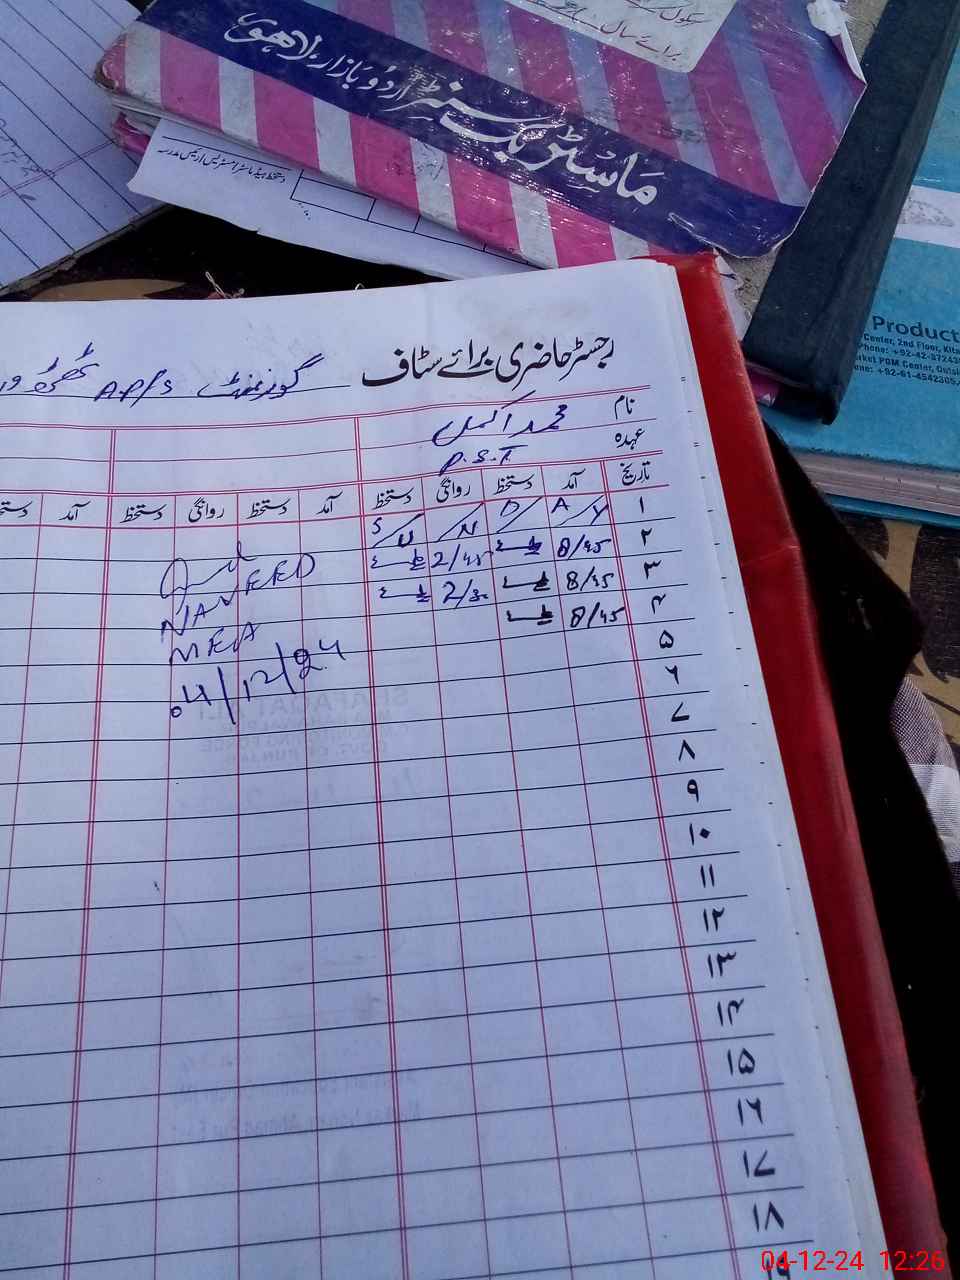 سکول
برائے سال
ماسٹر بک سنٹر اردو بازار، لاہور
دستخط ہیڈ ماسٹر / مسٹریس / رئیس مدرسہ
Product
Center, 2nd Floor, Kita
Phone: +92-42-372436
arket PGM Center, Outsi
Phone: +92-61-4542305,
رجسٹر حاضری برائے سٹاف گورنمنٹ A P/S
نام محمد اکمل
عہدہ P.S.T
تاریخ آمد دستخط روانگی دستخط آمد دستخط روانگی دستخط آمد
۱ S U N D A Y
۲ 8/45 2/45
۳ 8/45 2/30
۴ 8/45
NAVEED
MEA
04/12/24
۵
۶
۷
۸
۹
۱۰
۱۱
۱۲
۱۳
۱۴
۱۵
۱۶
۱۷
۱۸
04-12-24 12:26